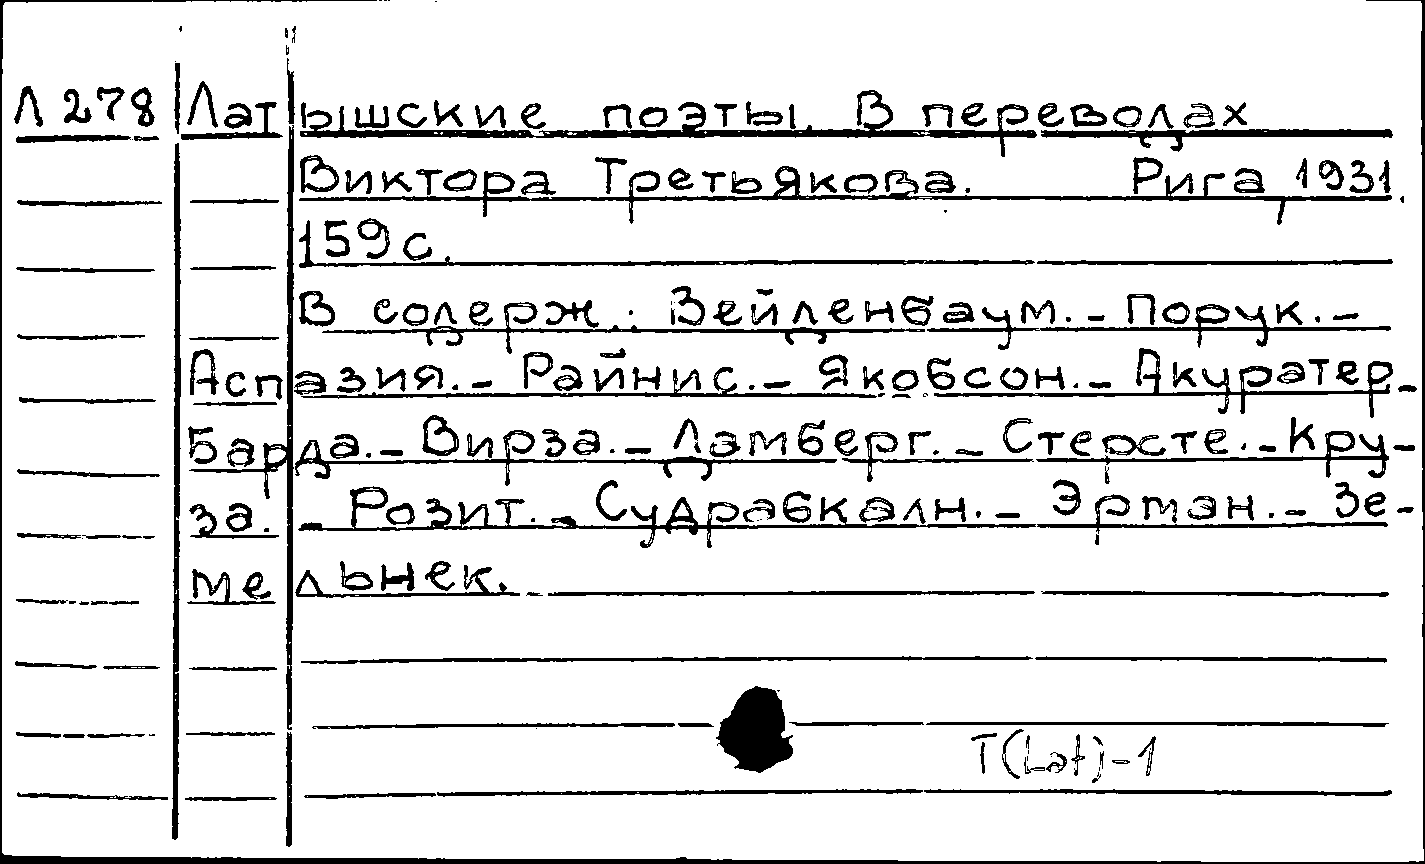 Л 278 Латышские поэты. В переводах
Виктора Третьякова. Рига, 1931.
159 с.
В содерж.: Вейденбаум. - Порук. -
Аспазия. - Райнис. - Якобсон. - Акуратер. -
Барда. - Вирза. - Дамберг. - Стерсте. - Кру-
за. - Розит. - Судрабкалн. - Эрман. - Зе-
мельнек.
T(Lat)-1